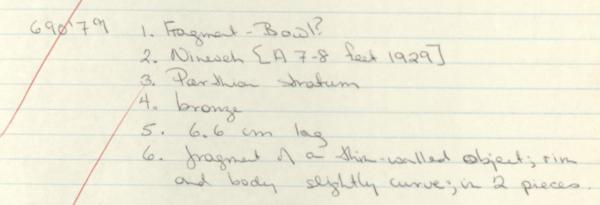 690'79 1. Fragment - Bowl?
2. Nineveh [A 7-8 feet 1929]
3. Parthian stratum
4. bronze
5. 6.6 cm lag
6. fragment of a thin-walled object; rim
and body slightly curve; in 2 pieces.